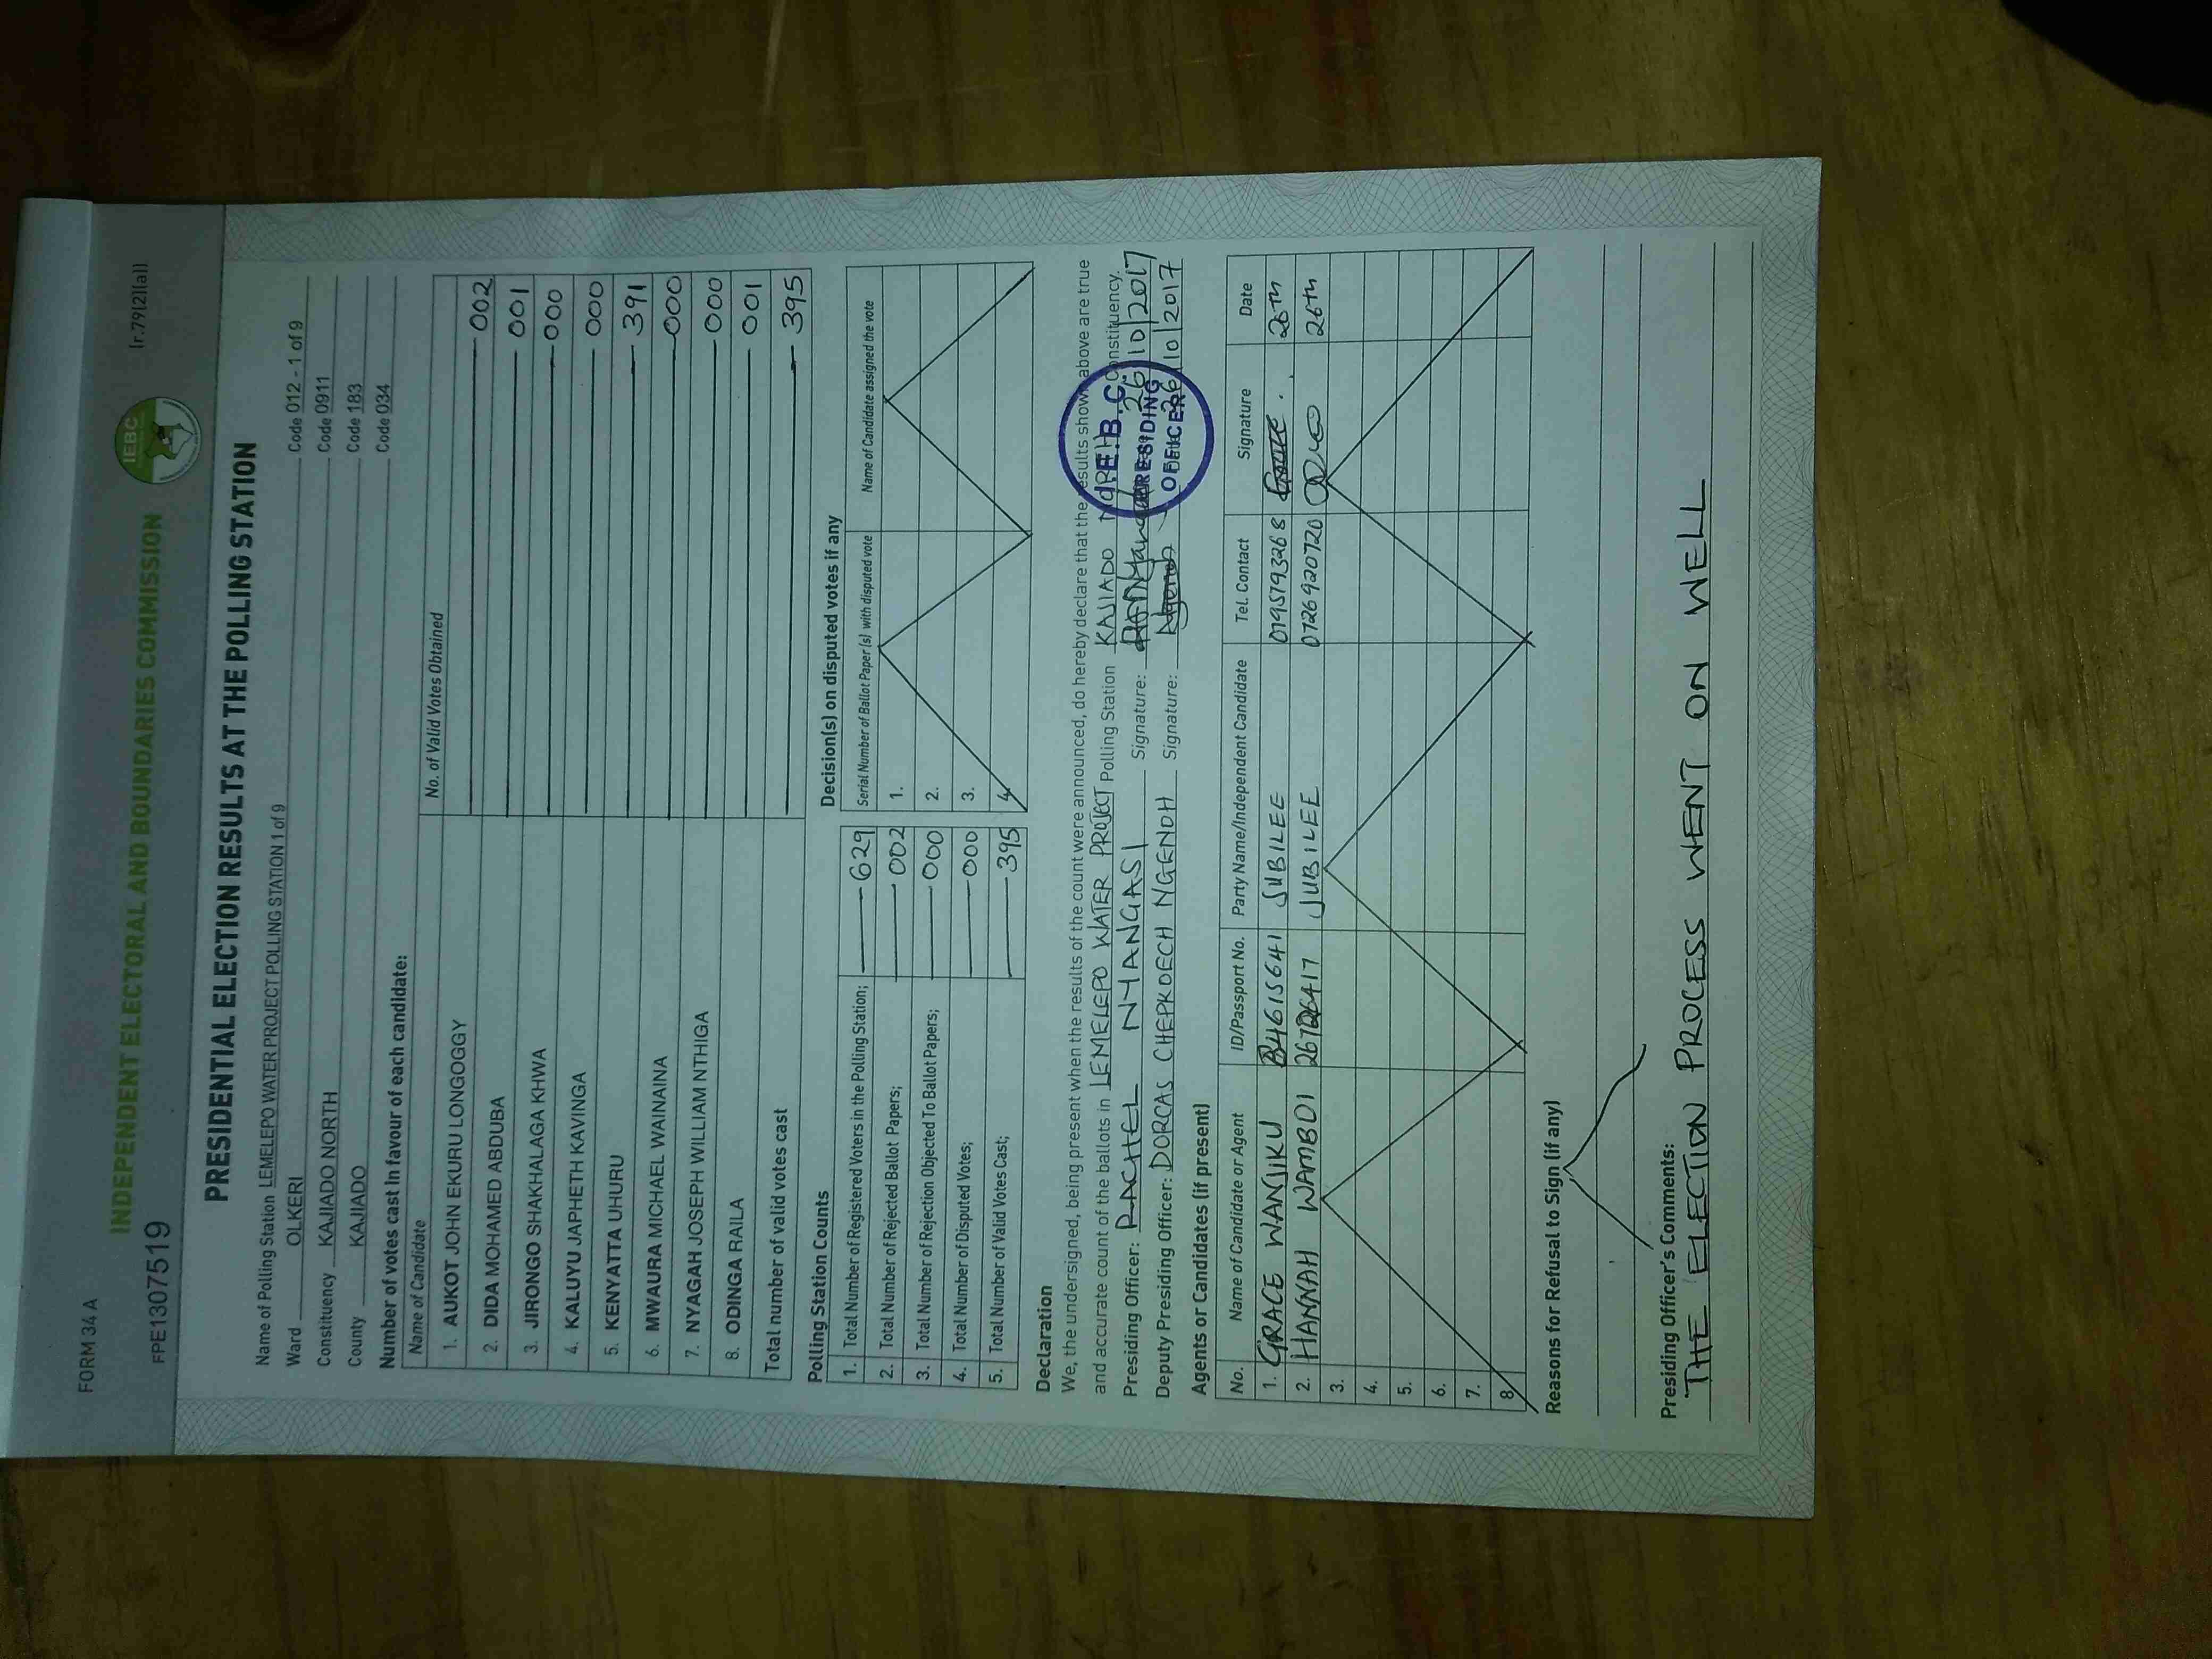 FORM 34 A
(r.79(2)(a))
IEBC
INDEPENDENT ELECTORAL AND BOUNDARIES COMMISSION
FPE1307519
PRESIDENTIAL ELECTION RESULTS AT THE POLLING STATION
Name of Polling Station LEMELEPO WATER PROJECT POLLING STATION 1 of 9 Code 012 - 1 of 9
Ward OLKERI Code 0911
Constituency KAJIADO NORTH Code 183
County KAJIADO Code 034
Number of votes cast in favour of each candidate:
Name of Candidate No. of Valid Votes Obtained
1. AUKOT JOHN EKURU LONGOGGY 002
2. DIDA MOHAMED ABDUBA 001
3. JIRONGO SHAKHALAGA KHWA 000
4. KALUYU JAPHETH KAVINGA 000
5. KENYATTA UHURU 391
6. MWAURA MICHAEL WAINAINA 000
7. NYAGAH JOSEPH WILLIAM NTHIGA 000
8. ODINGA RAILA 001
Total number of valid votes cast 395
Polling Station Counts
1. Total Number of Registered Voters in the Polling Station; 629
2. Total Number of Rejected Ballot Papers; 002
3. Total Number of Rejection Objected To Ballot Papers; 000
4. Total Number of Disputed Votes; 000
5. Total Number of Valid Votes Cast; 395
Decision(s) on disputed votes if any
Serial Number of Ballot Paper (s) with disputed vote Name of Candidate assigned the vote
1.
2.
3.
4.
Declaration
We, the undersigned, being present when the results of the count were announced, do hereby declare that the results shown above are true
and accurate count of the ballots in LEMELEPO WATER PROJECT Polling Station KAJIADO Constituency.
Presiding Officer: RACHEL NYANGASI Signature: 26/10/2017
Deputy Presiding Officer: DORCAS CHEPKOECH NGENOH Signature: 26/10/2017
I.E.B.C.
PRESIDING
OFFICER
Agents or Candidates (if present)
No. Name of Candidate or Agent ID/Passport No. Party Name/Independent Candidate Tel. Contact Signature Date
1. GRACE WANJIKU JUBILEE 0795793268 26th
2. HANNAH WAMBUI JUBILEE 0726920720 26th
3.
4.
5.
6.
7.
8.
Reasons for Refusal to Sign (if any)
Presiding Officer's Comments:
THE ELECTION PROCESS WENT ON WELL